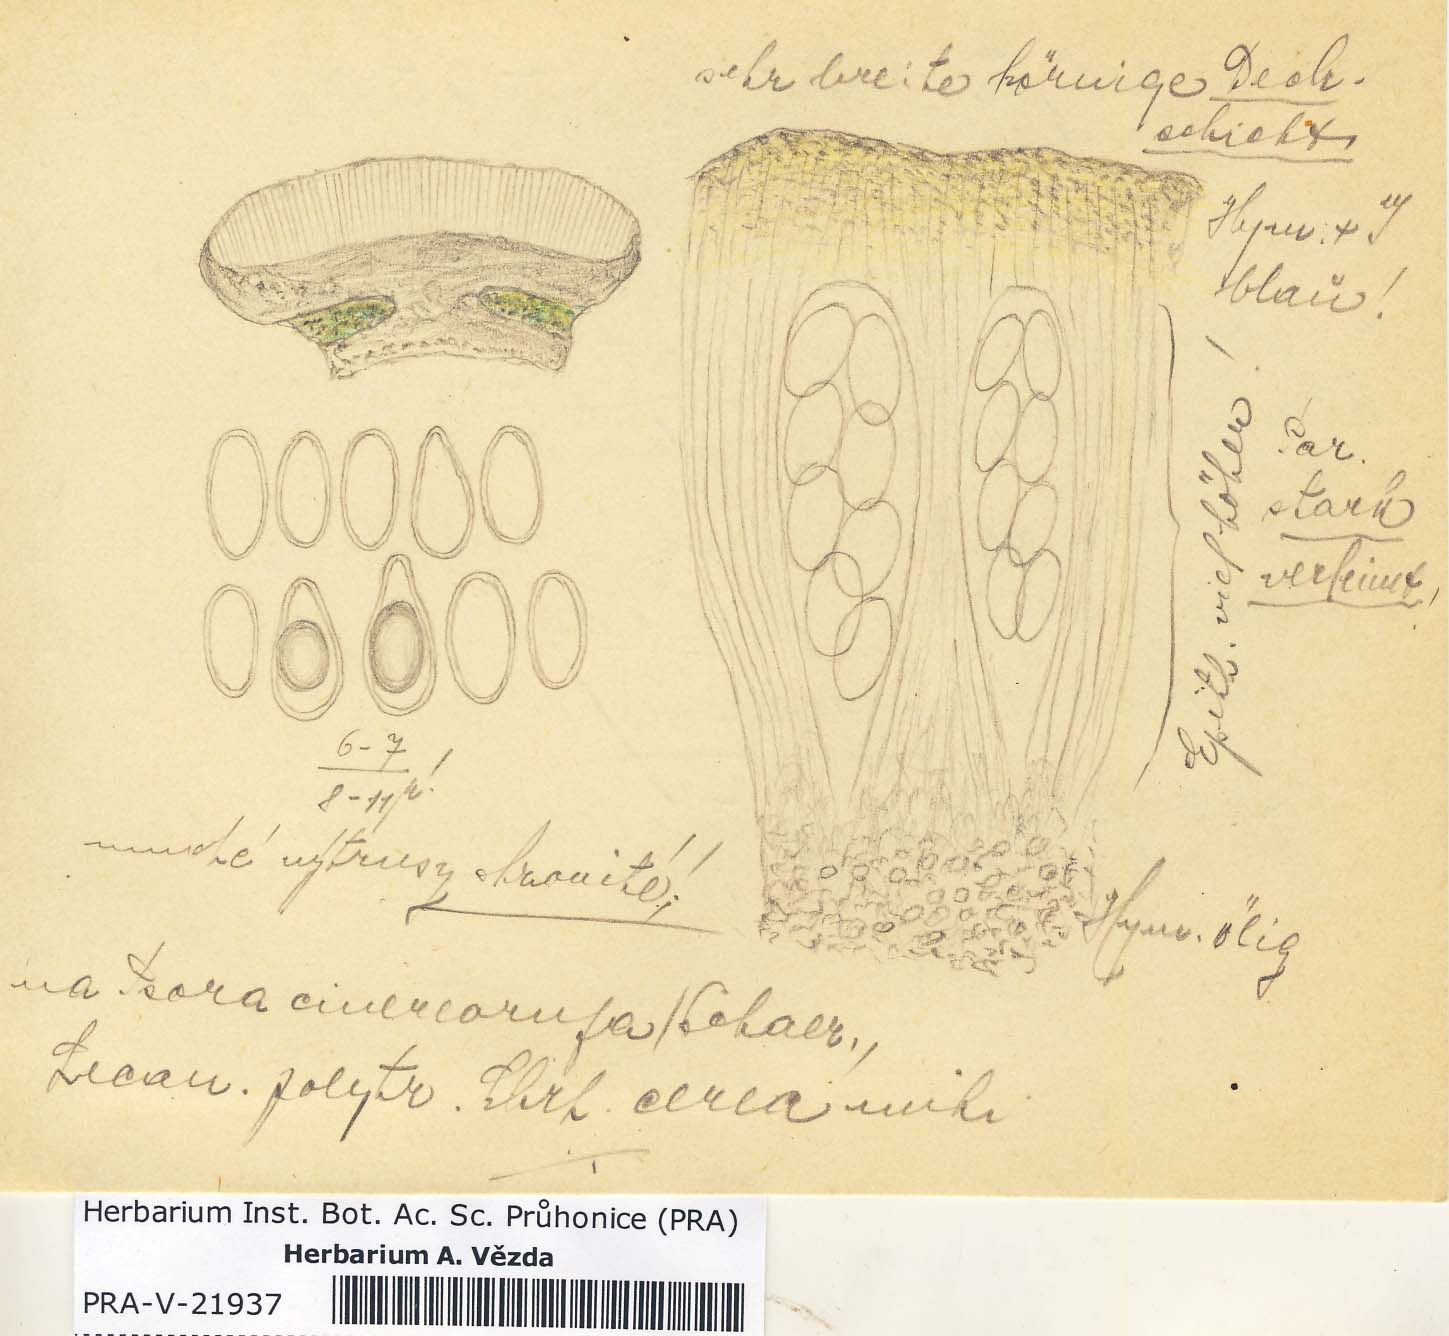 sehr breite körnige Deck-
schicht
Hym. + J
blau!
Epith. viel höher!
Par.
stark
verleimt,
6-7
8-11 µ!
výtrusy
Hym. ölig
na cinereorufa Schaer.,
Lecan. polytr. Ehrh. mihi
Herbarium Inst. Bot. Ac. Sc. Průhonice (PRA)
Herbarium A. Vězda
PRA-V-21937